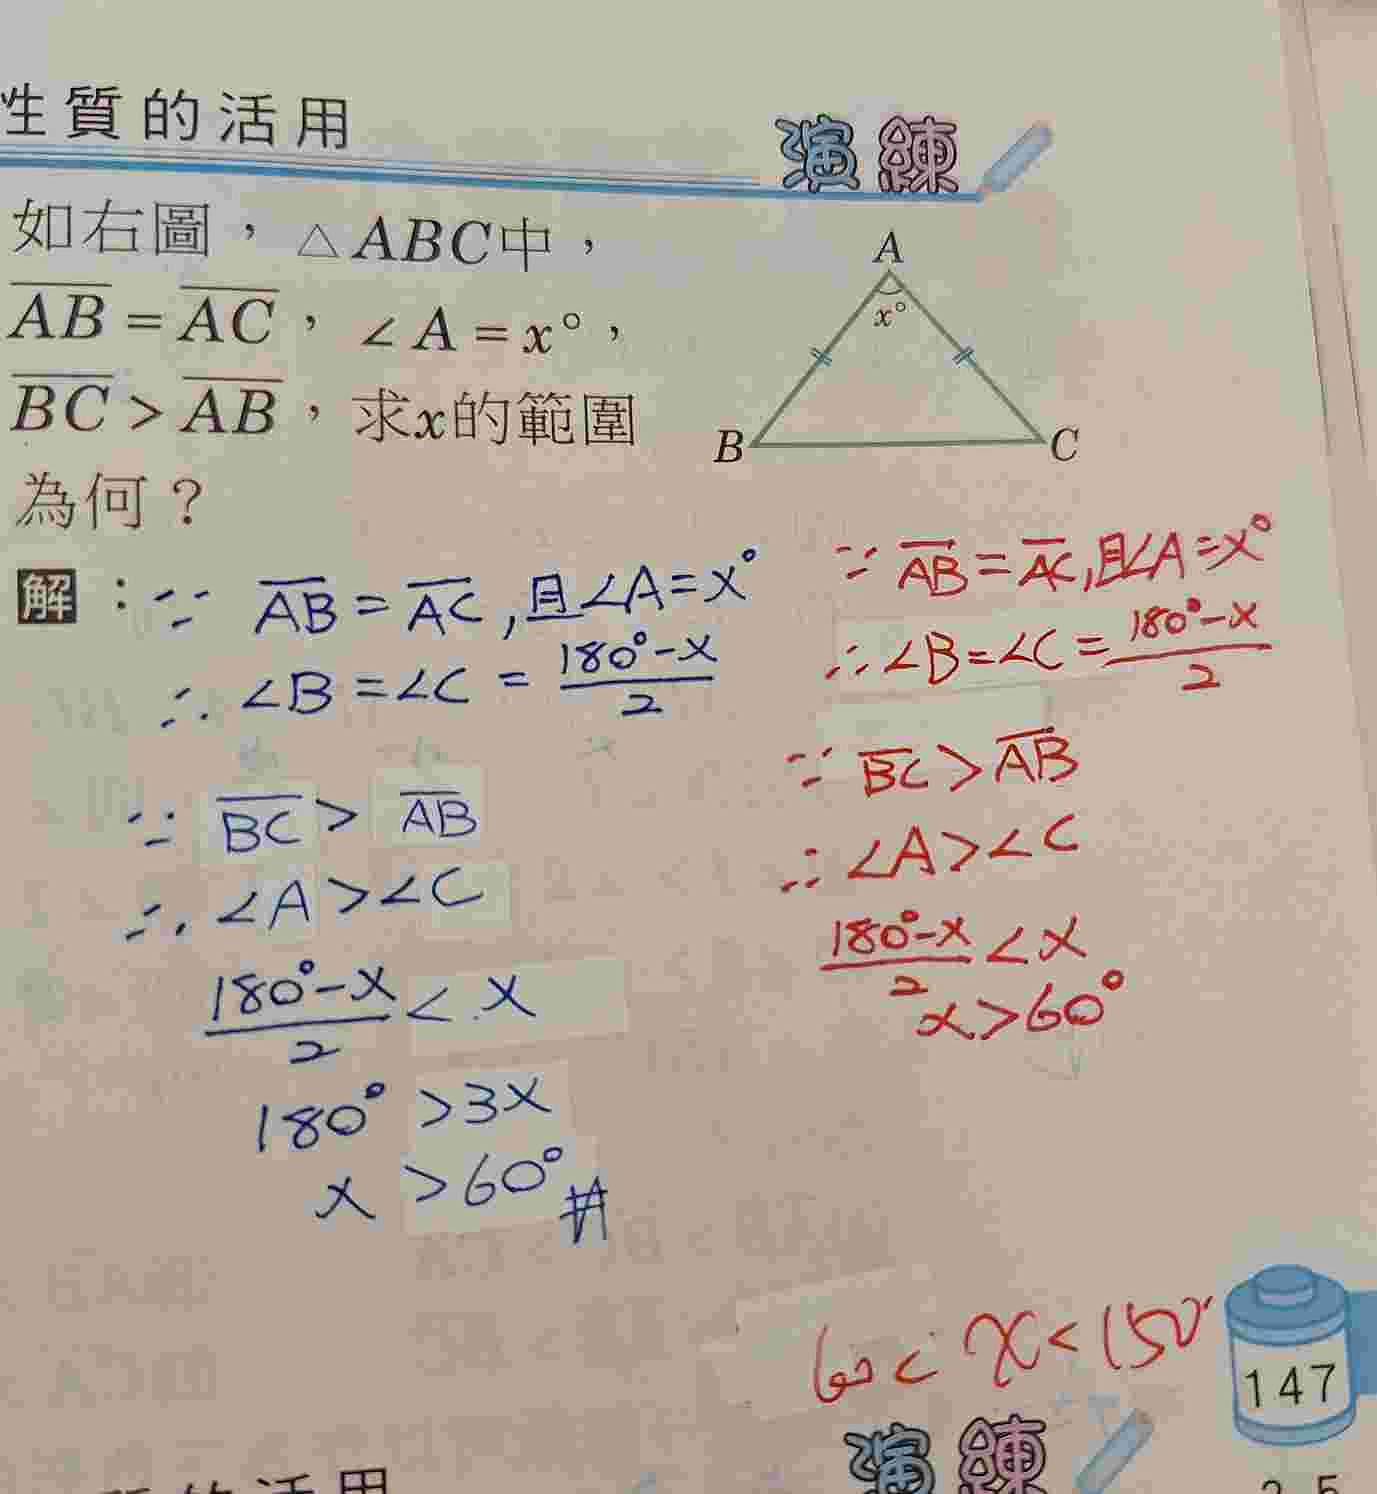 性質的活用
演練
如右圖，△ABC中，
AB = AC，∠A = x°，
BC > AB，求x的範圍
為何？
A
x°
B
C
解：∵ AB = AC , 且∠A = x°
∴ ∠B = ∠C = (180° - x)/2
∵ BC > AB
∴ ∠A > ∠C
(180° - x)/2 < x
180° > 3x
x > 60° #
∵ AB = AC, 且∠A = x°
∴ ∠B = ∠C = (180° - x)/2
∵ BC > AB
∴ ∠A > ∠C
(180° - x)/2 < x
x > 60°
60 < x < 150
147
演練
的活用